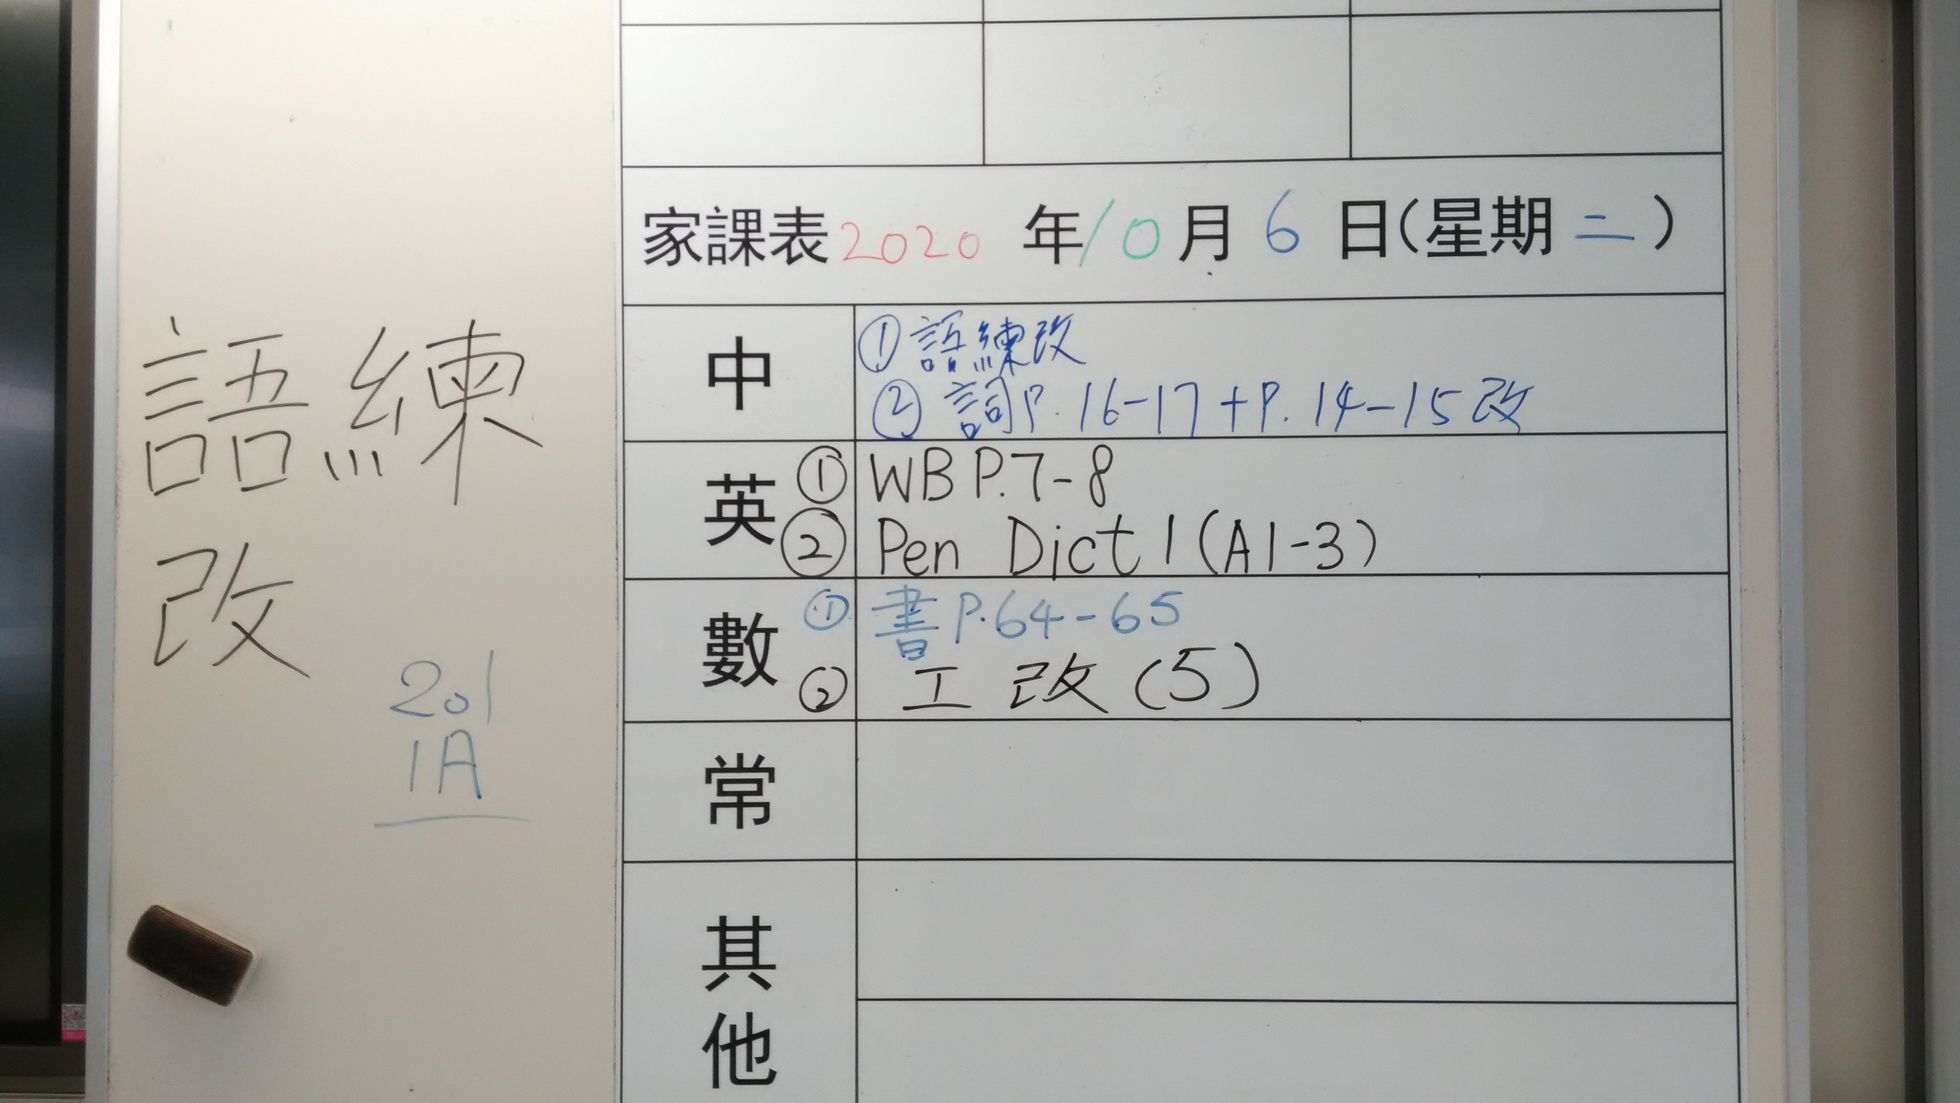 家課表2020年10月6日(星期二)
中
①語練改
②詞P.16-17+P.14-15改
英
①WB P.7-8
②Pen Dict 1 (A1-3)
數
①書P.64-65
②工改(5)
常
其
他
語練
改
201
1A